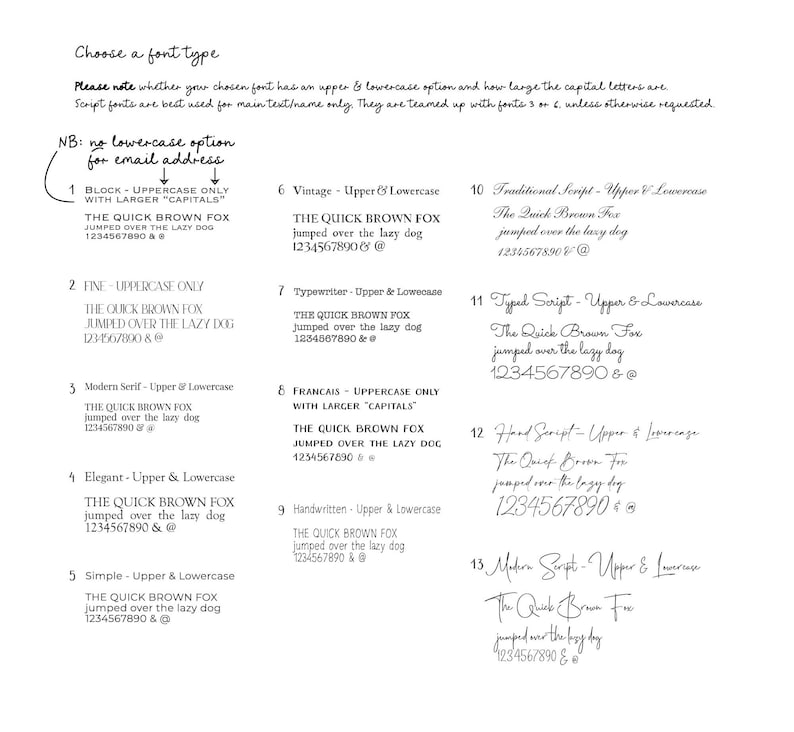 Choose a font type
Please note whether your chosen font has an upper & lowercase option and how large the capital letters are.
Script fonts are best used for main text/name only. They are teamed up with fonts 3 or 6, unless otherwise requested.
NB: no lowercase option
for email address
1 Block - Uppercase only
with larger "capitals"
THE QUICK BROWN FOX
jumped over the lazy dog
1234567890 & @
2 FINE - UPPERCASE ONLY
THE QUICK BROWN FOX
JUMPED OVER THE LAZY DOG
1234567890 & @
3 Modern Serif - Upper & Lowercase
THE QUICK BROWN FOX
jumped over the lazy dog
1234567890 & @
4 Elegant - Upper & Lowercase
THE QUICK BROWN FOX
jumped over the lazy dog
1234567890 & @
5 Simple - Upper & Lowercase
THE QUICK BROWN FOX
jumped over the lazy dog
1234567890 & @
6 Vintage - Upper & Lowercase
THE QUICK BROWN FOX
jumped over the lazy dog
1234567890 & @
7 Typewriter - Upper & Lowecase
THE QUICK BROWN FOX
jumped over the lazy dog
1234567890 & @
8 Francais - Uppercase only
with larger "capitals"
THE QUICK BROWN FOX
jumped over the lazy dog
1234567890 & @
9 Handwritten - Upper & Lowercase
THE QUICK BROWN FOX
jumped over the lazy dog
1234567890 & @
10 Traditional Script - Upper & Lowercase
The Quick Brown Fox
jumped over the lazy dog
1234567890 & @
11 Typed Script - Upper & Lowercase
The Quick Brown Fox
jumped over the lazy dog
1234567890 & @
12 Hand Script - Upper & Lowercase
The Quick Brown Fox
jumped over the lazy dog
1234567890 & @
13 Modern Script - Upper & Lowercase
The Quick Brown Fox
jumped over the lazy dog
1234567890 & @